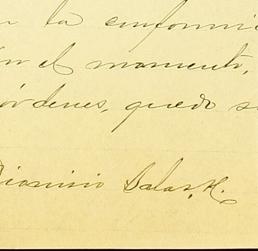 la conformi
en el momento,
órdenes, quedo s
Dionisio Salas, H.